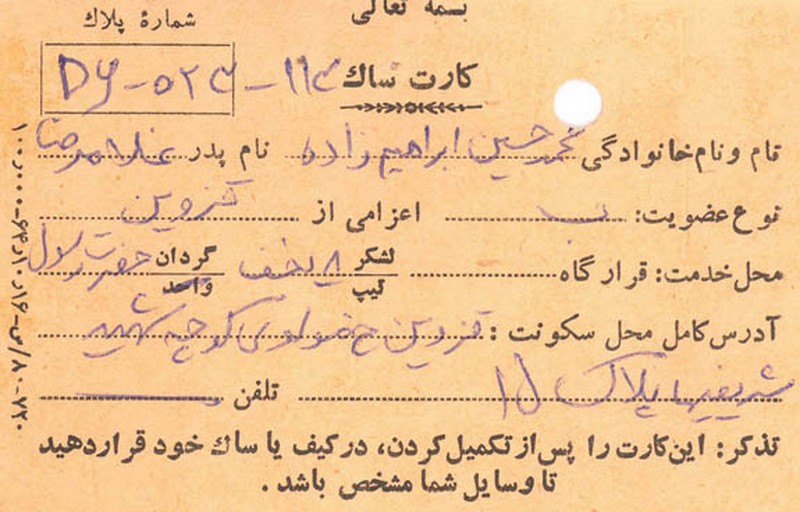 بسمه تعالی
شمارهٔ پلاك
کارت ساك
DY-۵۲۳-۱۱۳
نام و نام‌خانوادگی محمدحسین ابراهیم‌زاده نام پدر غلامرضا
نوع عضویت: ب اعزامی از قزوین
محل خدمت: قرارگاه لشکر تیپ ۸ نجف گردان واحد حضرت رسول
آدرس کامل محل سکونت: قزوین خ مولوی کوچه شهید
شریفیها پلاک ۱۵ تلفن
تذکر: این کارت را پس از تکمیل کردن، در کیف یا ساك خود قرار دهید
تا وسایل شما مشخص باشد.